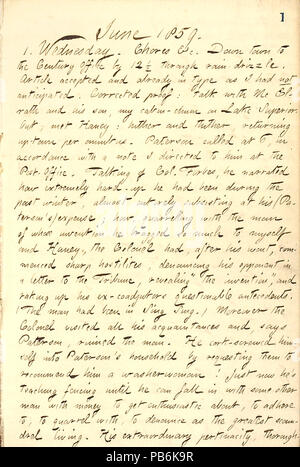 1
June 1859.
1. Wednesday. Chores &c. Down town to
the Century Office by 12½ through rain drizzle.
Article accepted and already in type as I had not
anticipated. Corrected proof: talk with Mc El-
rath and his son, my cabin-chum on Lake Superior.
Out, met Haney: hither and thither, returning
uptown per omnibus. Paterson called at 6, in
accordance with a note I directed to him at the
Post-Office. Talking of Col. Forbes, he narrated
how extremely hard-up he had been during the
past winter, almost entirely subsisting at his (Pa-
terson's) expense, how, quarreling with the man
of whose invention he bragged so much to myself
and Haney, the Colonel had, after his wont, com-
menced sharp hostilities, denouncing his opponent in
a letter to the Tribune, "revealing" the invention, and
raking up his ex-coadjutor's questionable antecedents.
(The man had been in Sing Sing.) Moreover the
Colonel visited all his acquaintances and, says
Patterson, ruined the man. He cork-screwed him-
self into Paterson's household by requesting them to
recommend him a washerwoman! Just now he's
teaching fencing until he can fall in with some other
man with money to get enthusiastic about, to adhere
to, to quarrel with, to denounce as the greatest scoun-
drel living. His extraordinary pertinacity, thorough
alamy
alamy
PB6K9R